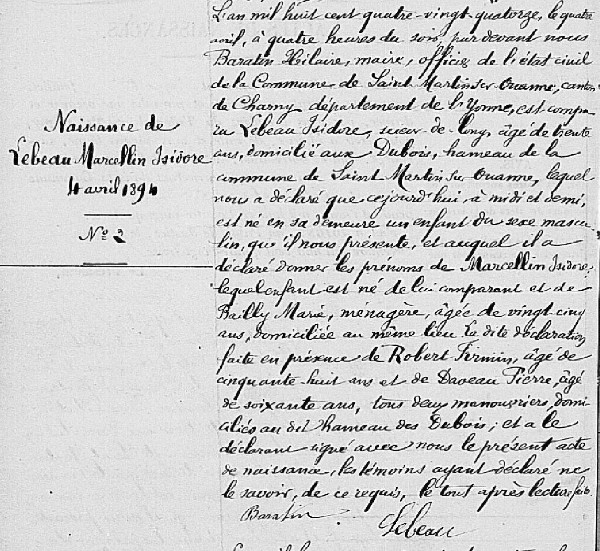 Naissance de
Lebeau Marcellin Isidore
4 avril 1894
N° 2
L'an mil huit cent quatre-vingt-quatorze, le quatre
avril, à quatre heures du soir, par devant nous
Baratin Hilaire, maire, officier de l'état civil
de la Commune de Saint Martin sur Ouanne, canton
de Charny département de l'Yonne, est compa-
ru Lebeau Isidore, scieur de long, âgé de trente
ans, domicilié aux Dubois, hameau de la
commune de Saint Martin sur Ouanne, lequel
nous a déclaré que cejourd'hui, à midi et demi,
est né en sa demeure un enfant du sexe mascu-
lin, qu'il nous présente, et auquel il a
déclaré donner les prénoms de Marcellin Isidore,
lequel enfant est né de lui comparant et de
Bailly Marie, ménagère, âgée de vingt cinq
ans, domiciliée au même lieu la dite déclaration
faite en présence de Robert Firmin, âgé de
cinquante-huit ans et de Daveau Pierre, âgé
de soixante ans, tous deux manouvriers, domi-
ciliés au dit hameau des Dubois; et a le
déclarant signé avec nous le présent acte
de naissance, les témoins ayant déclaré ne
le savoir, de ce requis, le tout après lecture faite.
Baratin
Lebeau